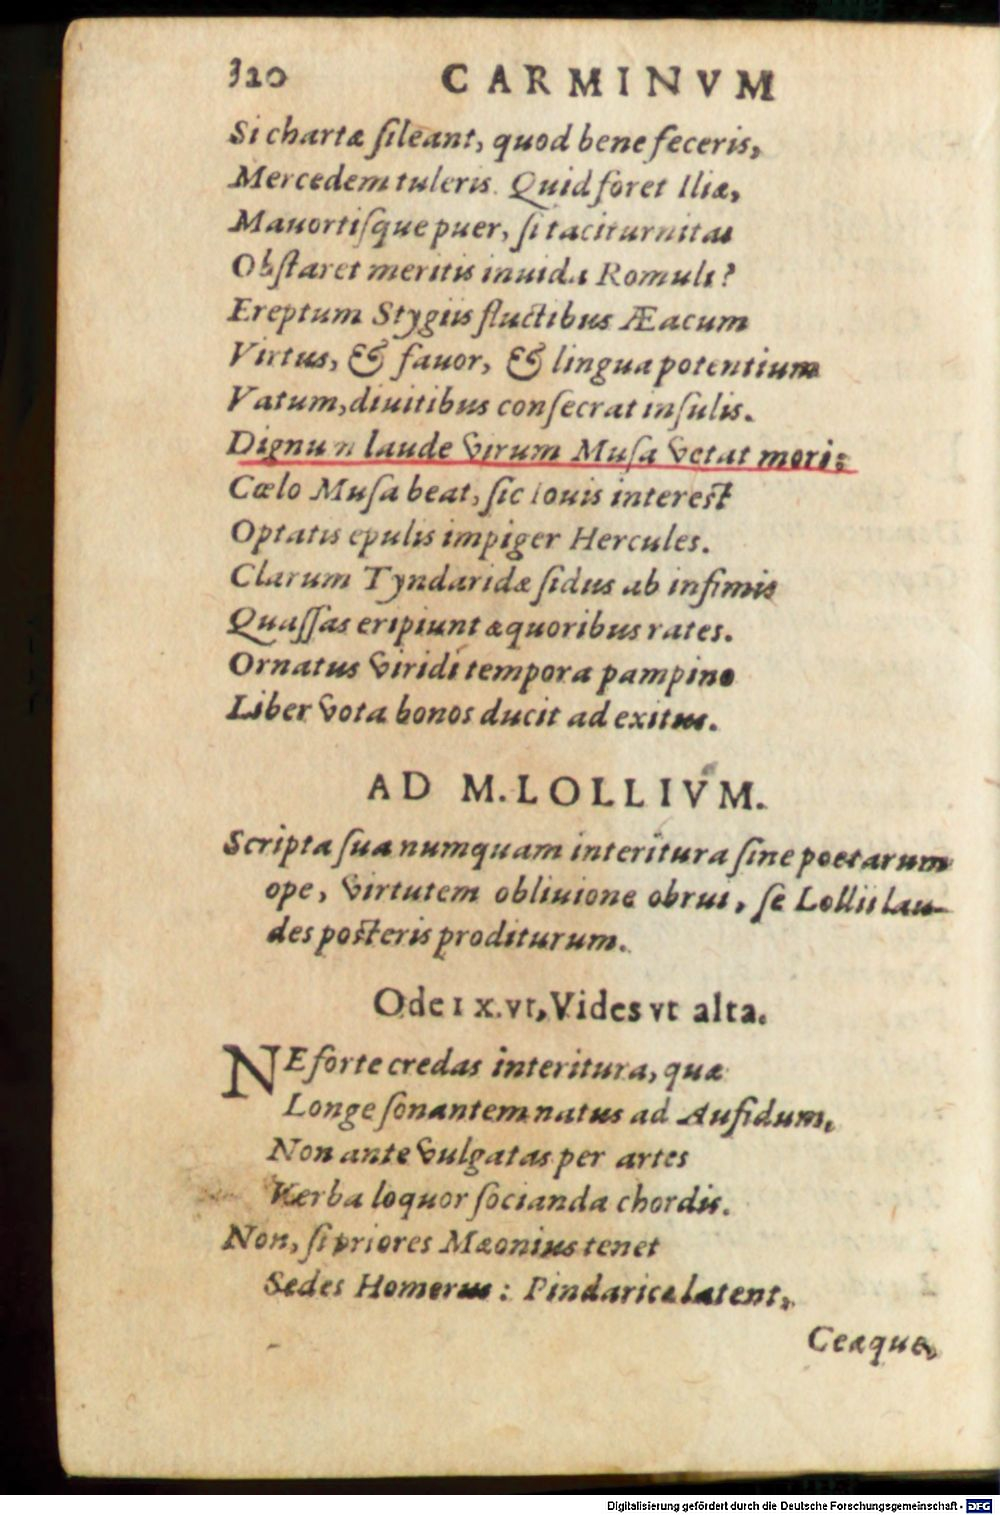 320 CARMINVM
Si chartæ ſileant, quod bene feceris,
Mercedem tuleris. Quid foret Iliæ,
Mauortiſque puer, ſi taciturnitas
Obſtaret meritis inuida Romuli?
Ereptum Stygiis fluctibus Æacum
Virtus, & fauor, & lingua potentium
Vatum, diuitibus conſecrat inſulis.
Dignum laude virum Muſa vetat mori:
Cœlo Muſa beat, ſic Iouis intereſt
Optatis epulis impiger Hercules.
Clarum Tyndaridæ ſidus ab infimis
Quaſſas eripiunt æquoribus rates.
Ornatus viridi tempora pampino
Liber vota bonos ducit ad exitus.
AD M. LOLLIVM.
Scripta ſua numquam interitura ſine poetarum
ope, virtutem obliuione obrui, ſe Lollii lau-
des poſteris proditurum.
Ode IX. vt, Vides vt alta.
NE forte credas interitura, quæ
Longe ſonantem natus ad Aufidum,
Non ante vulgatas per artes
Verba loquor ſocianda chordis.
Non, ſi priores Mæonius tenet
Sedes Homerus: Pindaricæ latent,
Ceæque,
Digitalisierung gefördert durch die Deutsche Forschungsgemeinschaft - DFG